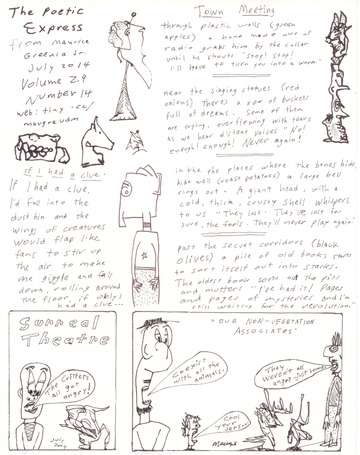 The Poetic
Express
from maurice
Greenia Jr.
July 2014
Volume 29
Number 14
web: tiny.cc/
maugreuam
If I had a clue.
If I had a clue,
I'd fall into the
dust bin and the
wings of creatures
would flap like
fans to stir up
the air to make
me giggle and fall
down, rolling around
the floor, if only I
had a clue...
Town Meeting
through plastic walls (green
apples) a home made out of
radio grabs him by the collar
until he shouts "stop! stop!
I'll have to turn you into a worm."
near the singing statues (red
onions) There's a row of buckets
full of dreams. Some of them
are crying, overflowing with tears
as we hear distant voices "No!
enough! enough! Never again!
in the places where the bones hide,
hide well (roast potatoes) a large bell
rings out. A giant head, with a
cold, thick, crusty shell whispers
to us "They lost! They've lost for
sure, the fools. They'll never play again."
past the secret corridors (black
olives) a pile of old books starts
to sort itself out into stacks.
The oldest book sorts out the
and mutters "I've had it! Pages
and pages of mysteries and I'm
still waiting for the revolution."
Surreal
Theatre
"OUR NON-VEGETATION
ASSOCIATES"
The critters
all got
angry!
July
2014
Coexist
with all the
animals.
Cool
your
jets..
They
weren't all
angry